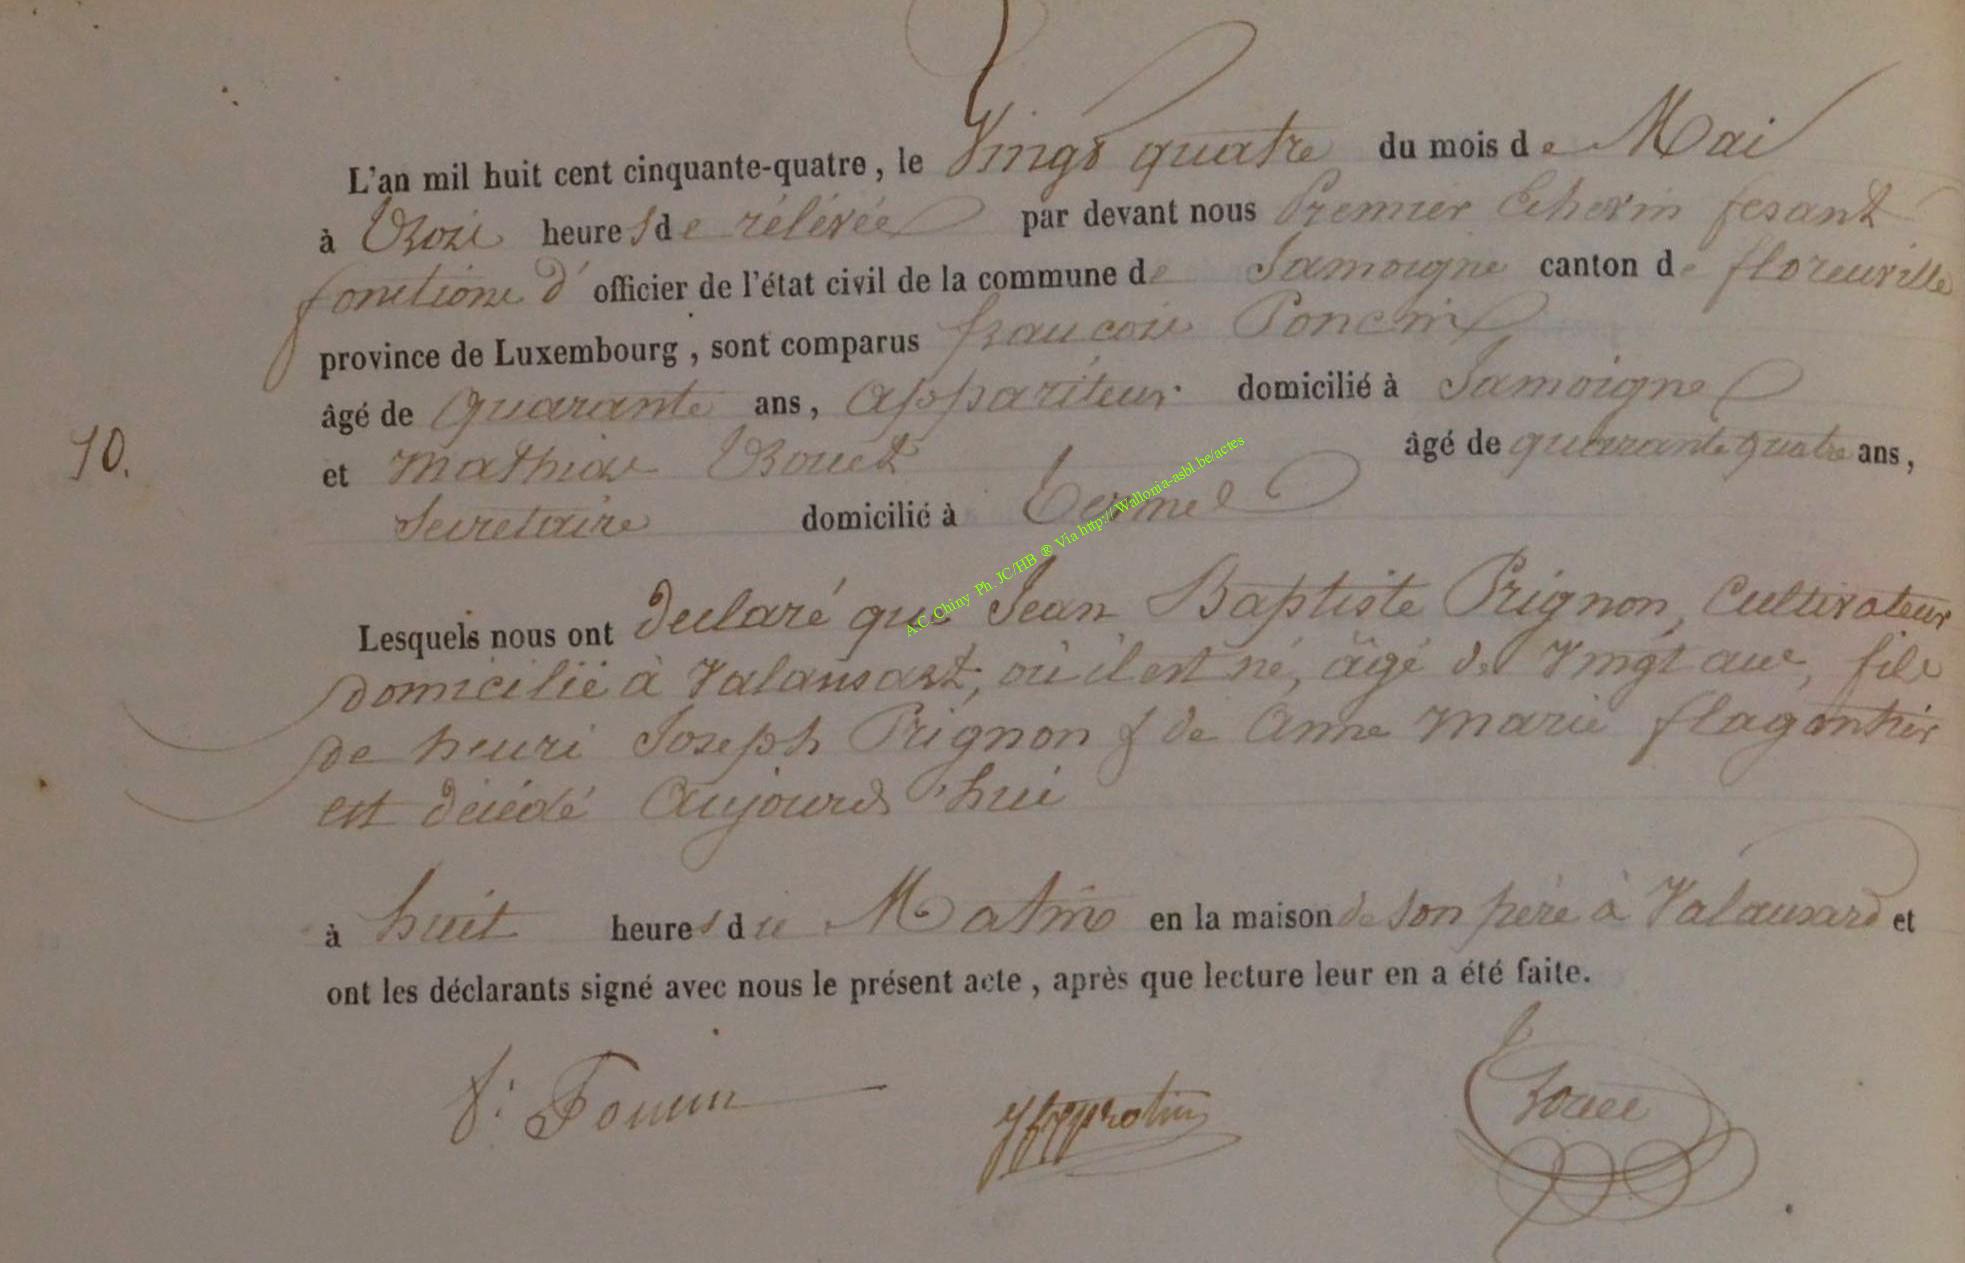 L'an mil huit cent cinquante-quatre, le Vingt quatre du mois de Mai
à Trois heures de rélévée par devant nous Premier Echevin fesant
fonctions d'officier de l'état civil de la commune de Jamoigne canton de florenville
province de Luxembourg, sont comparus francois Poncin
âgé de quarante ans, appariteur domicilié à Jamoigne
10.
et Mathias Bouet âgé de quarante quatre ans,
Secretaire domicilié à Termes
A.C. Chiny Ph. JC/HB ® Via http://Wallonia-asbl.be/actes
Lesquels nous ont declaré que Jean Baptiste Prignon, Cultivateur
domicilié à Valansart, où il est né, âgé de Vingt ans, fils
de henri Joseph Prignon & de Anne Marie flagontier
est décédé aujourd'hui
à huit heures du Matin en la maison de son père à Valansard et
ont les déclarants signé avec nous le présent acte, après que lecture leur en a été faite.